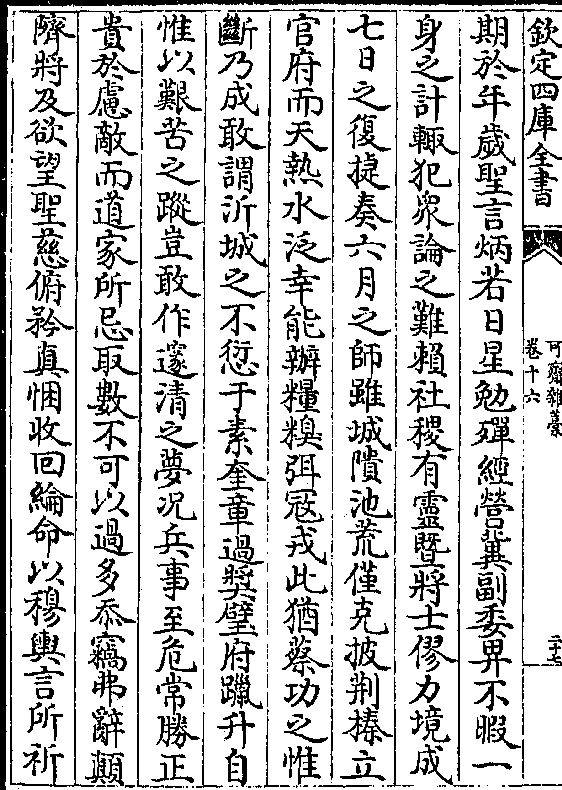 欽定四庫全書
可齋雜藁
卷十六
二十七
期於年歲聖言炳若日星勉殫經營冀副委畀不暇一
身之計輒犯衆論之難賴社稷有靈暨將士僇力境成
七日之復捷奏六月之師雖城隤池荒僅克披荆榛立
官府而天熱水泛幸能辦糧糗弭寇戎此猶蔡功之惟
斷乃成敢謂沂城之不愆于素奎章過奬璧府躐升自
惟以艱苦之蹤豈敢作邃清之夢況兵事至危常勝正
貴於慮敵而道家所忌取數不可以過多忝竊弗辭顛
隮將及欲望聖慈俯矜真悃收回綸命以穆輿言所祈